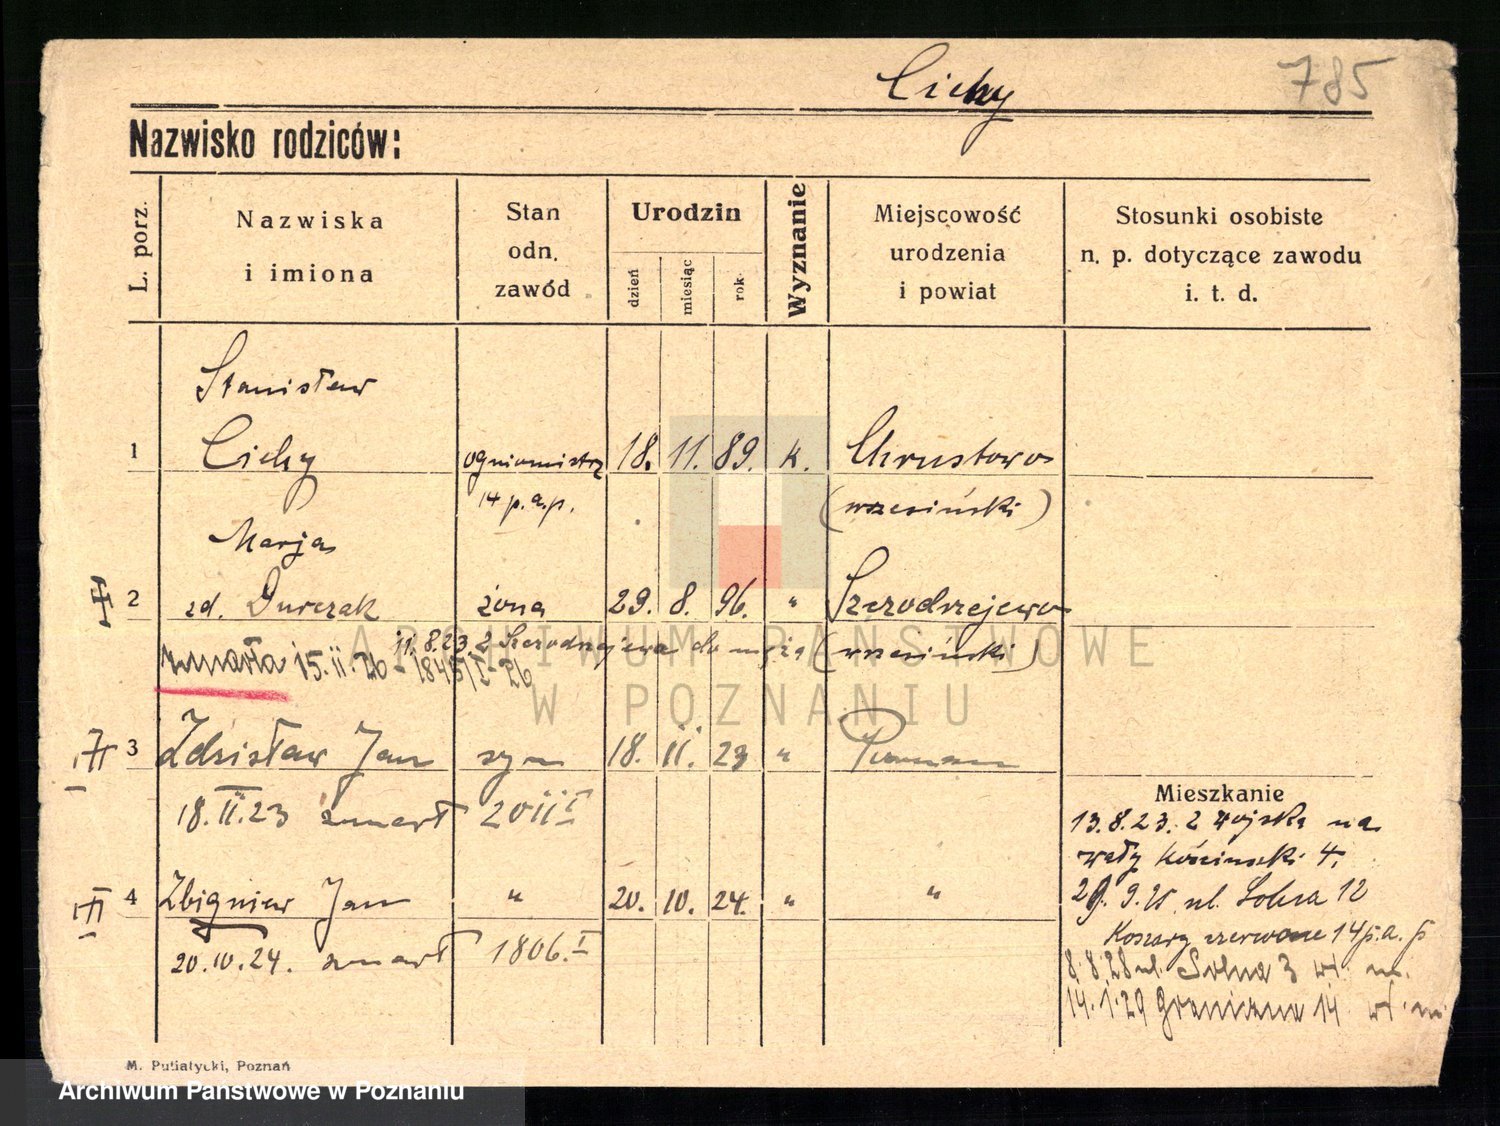 Cichy 785
Nazwisko rodziców:
L. porz.
Nazwiska
i imiona
Stan
odn.
zawód
Urodzin
dzień
miesiąc
rok
Wyznanie
Miejscowość
urodzenia
i powiat
Stosunki osobiste
n. p. dotyczące zawodu
i. t. d.
Stanisław
1 Cichy ogniomistrz 18. 11. 89. k. Chrustowo
14 p.a.p. (wrzesiński)
Marja
2 zd. Durczak żona 29. 8. 96. " Szczodrzejewo
11.8.23. z Szczodrzejewa do męża (wrzesiński)
zmarła 15.II.26 - 1845/I-26
3 Zdzisław Jan syn 18. II. 23 " Poznań
18.II.23 zmarł 20 III I
4 Zbigniew Jan " 20. 10. 24. " "
20.10.24. zmarł 1806. I
Mieszkanie
13.8.23. z wojska na
wały Kościuszki 4.
29.9.25 ul. Solna 12
Koszary czerwone 14 p.a.p
8.8.28 ul. Solna 3 wł. m.
14.1.29 Graniczna 14 wł. m.
M. Putiatycki, Poznań
ARCHIWUM PAŃSTWOWE
W POZNANIU
Archiwum Państwowe w Poznaniu